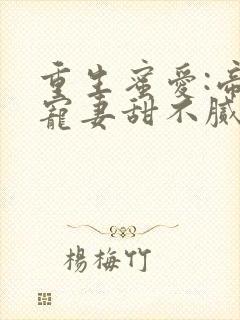 重生蜜愛:帝
寵妻甜不膩
楊梅竹